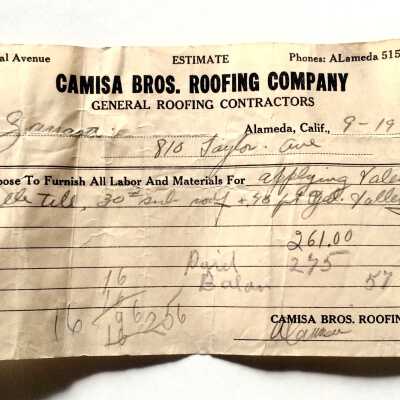 al Avenue ESTIMATE Phones: ALameda 515
CAMISA BROS. ROOFING COMPANY
GENERAL ROOFING CONTRACTORS
Alameda, Calif., 9-19
810 Taylor Ave
pose To Furnish All Labor and Materials For applying
Tile, 30# sub roof +
261.00
Paid 275
Balan 57
16
16 256
CAMISA BROS. ROOFIN